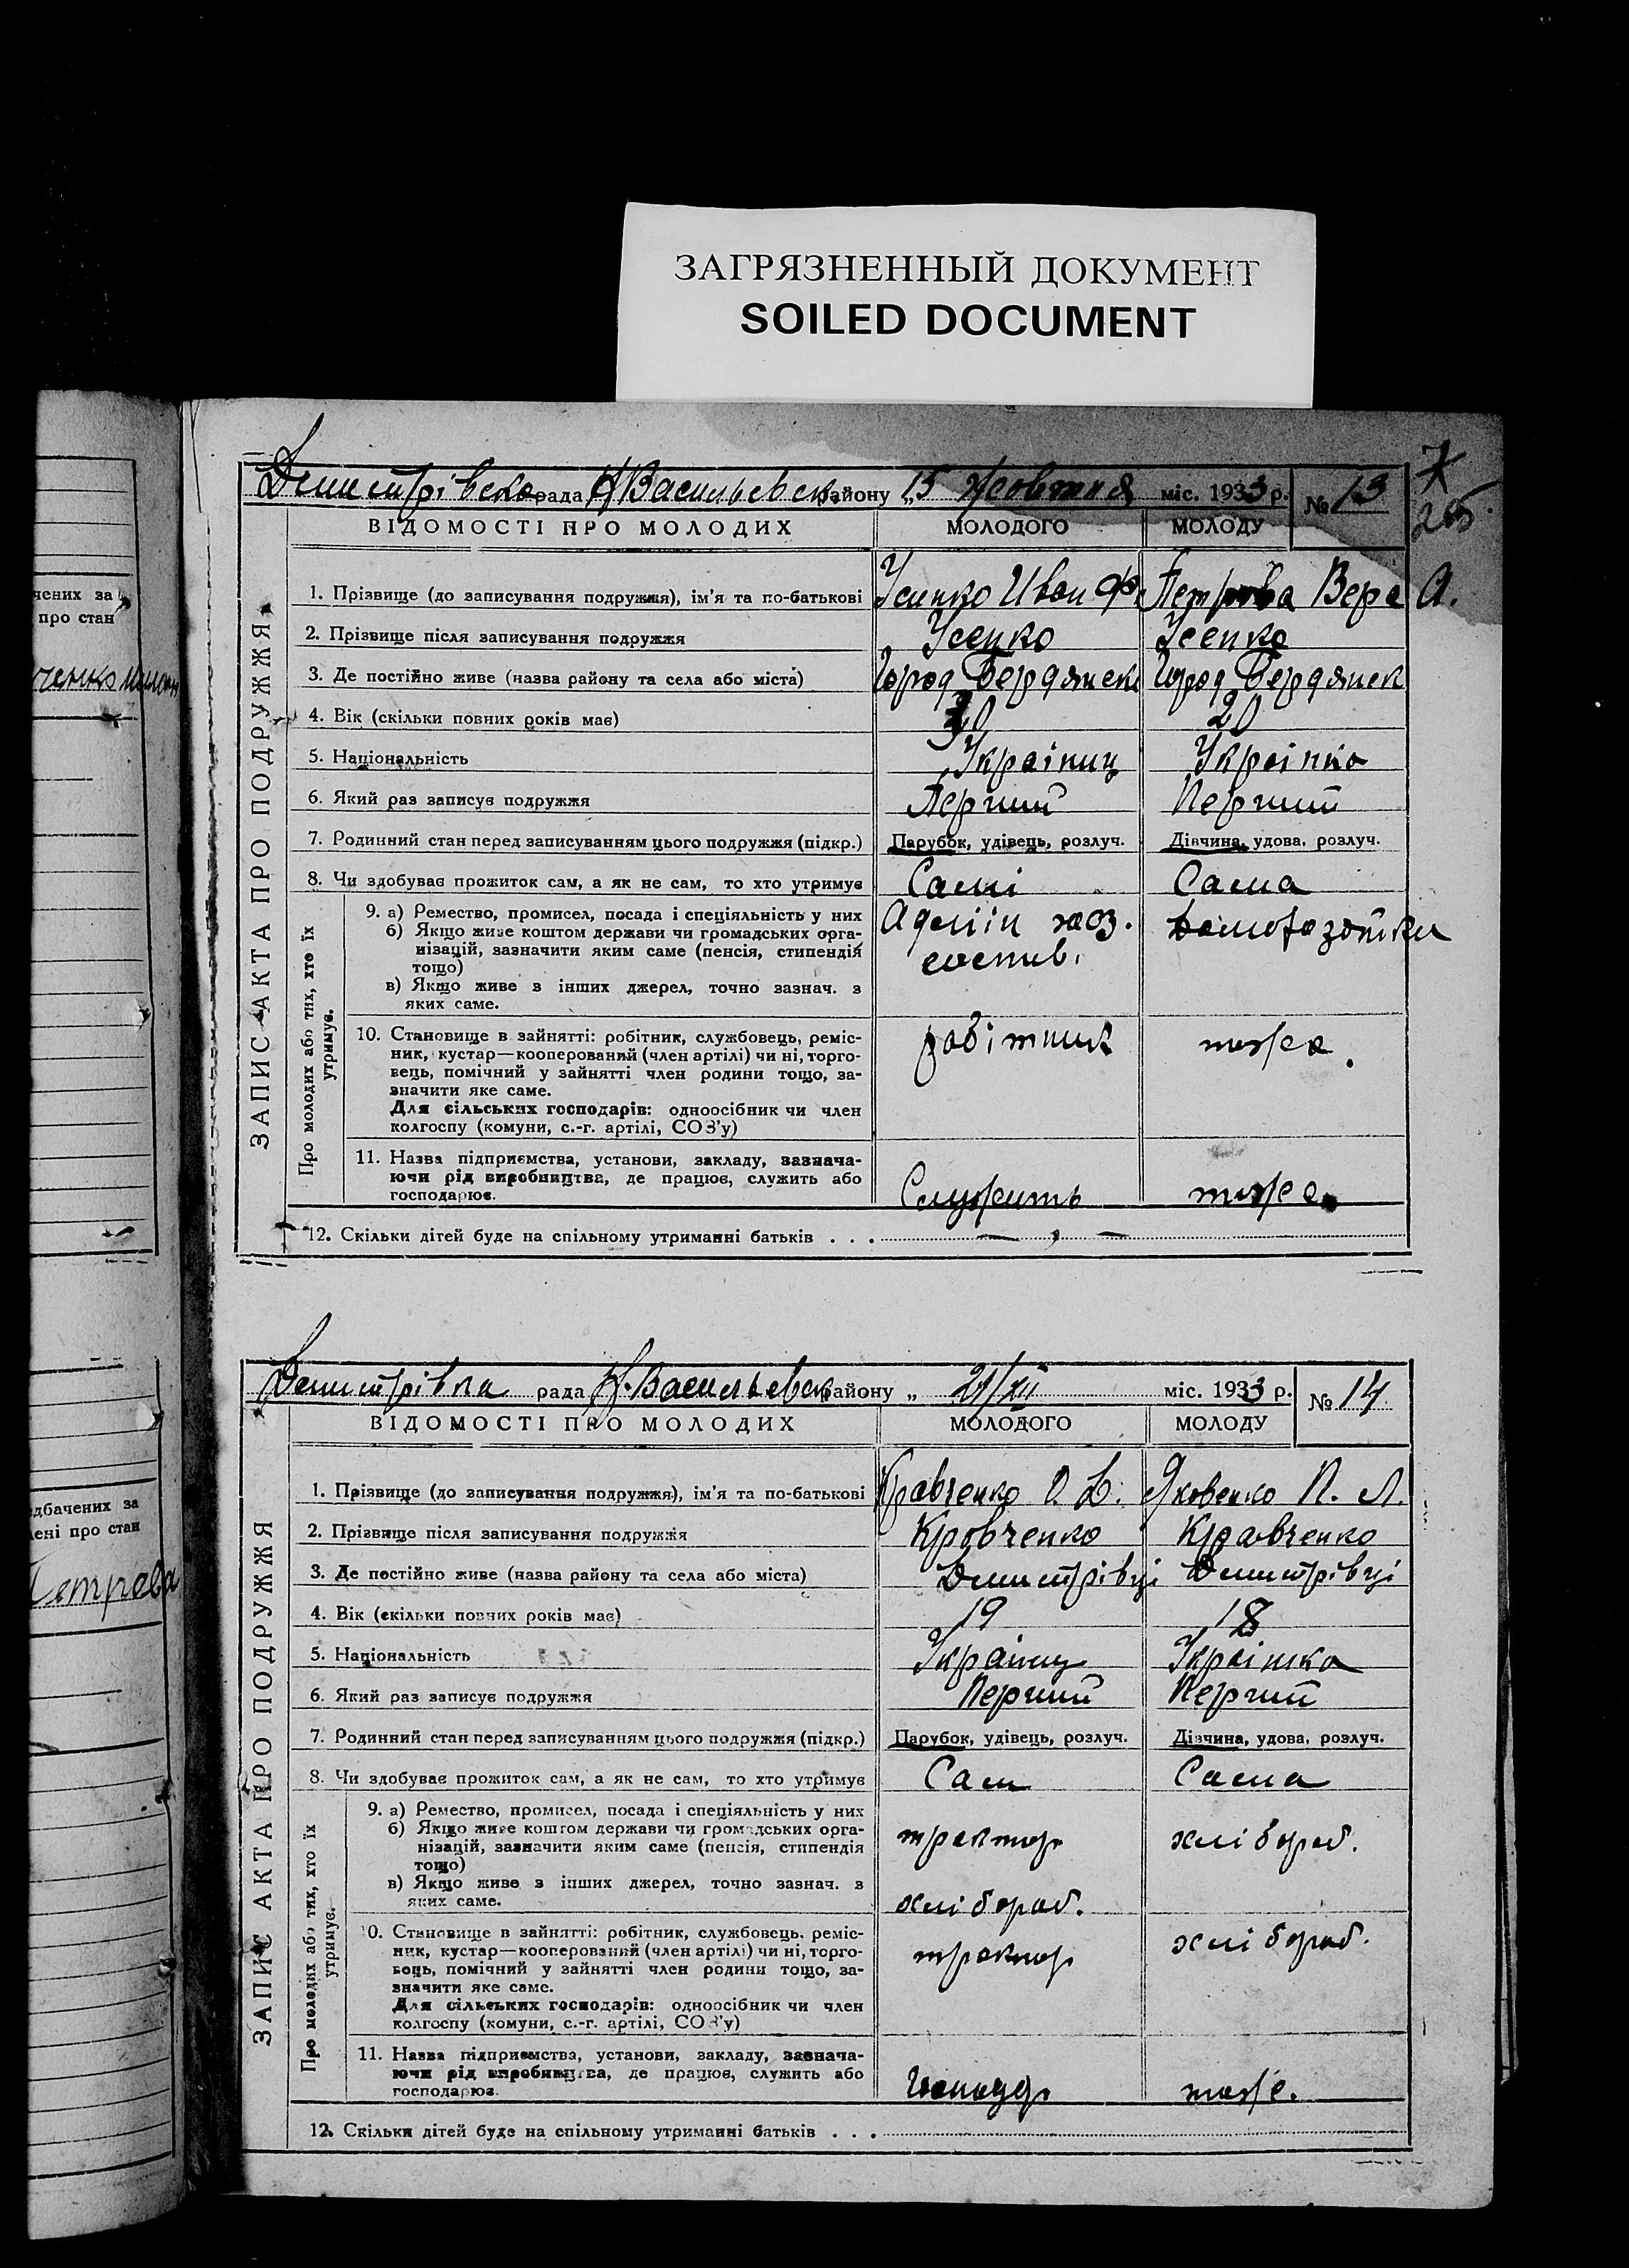 ЗАГРЯЗНЕННЫЙ ДОКУМЕНТ
SOILED DOCUMENT
Демитрівска рада Н Васильевск. району „15 жовтня міс. 1933 р. № 13
7
265
ВІДОМОСТІ ПРО МОЛОДИХ МОЛОДОГО МОЛОДУ
ЗАПИС АКТА ПРО ПОДРУЖЖЯ
1. Прізвище (до записування подружжя), ім'я та по-батькові Усенко Иван Ф. Петрова Вера А.
2. Прізвище після записування подружжя Усенко Усенко
3. Де постійно живе (назва району та села або міста) Город Бердянск Город Бердянск
4. Вік (скільки повних років має) 30 20
5. Національність Українц Українка
6. Який раз записує подружжя Перший Перший
7. Родинний стан перед записуванням цього подружжя (підкр.) Парубок, удівець, розлуч. Дівчина, удова, розлуч.
8. Чи здобуває прожиток сам, а як не сам, то хто утримує Самі Сама
Про молодих або тих, хто їх утримує.
9. а) Ремество, промисел, посада і спеціяльність у них Адмін хоз.
б) Якщо живе коштом держави чи громадських орга-
нізацій, зазначити яким саме (пенсія, стипендія состав.
тощо)
в) Якщо живе з інших джерел, точно зазнач. з
яких саме.
10. Становище в зайнятті: робітник, службовець, реміс- робітник тоже
ник, кустар—кооперований (член артілі) чи ні, торго-
вець, помічний у зайнятті член родини тощо, за-
значити яке саме.
Для сільських господарів: одноосібник чи член
колгоспу (комуни, с.-г. артілі, СОЗ'у)
11. Назва підприємства, установи, закладу, зазнача-
ючи рід виробництва, де працює, служить або
господарює. Служить тоже
12. Скільки дітей буде на спільному утриманні батьків . . . — , —
Демитрівка рада Н. Васильевск району „ 21/XII міс. 1933 р. № 14
ВІДОМОСТІ ПРО МОЛОДИХ МОЛОДОГО МОЛОДУ
ЗАПИС АКТА ПРО ПОДРУЖЖЯ
1. Прізвище (до записування подружжя), ім'я та по-батькові Кравченко О. Д. Яковенко П. Л.
2. Прізвище після записування подружжя Кровченко Кравченко
3. Де постійно живе (назва району та села або міста) Демитрівці Демитрівці
4. Вік (скільки повних років має) 19 18
5. Національність Українц Українка
6. Який раз записує подружжя Перший Перший
7. Родинний стан перед записуванням цього подружжя (підкр.) Парубок, удівець, розлуч. Дівчина, удова, розлуч.
8. Чи здобуває прожиток сам, а як не сам, то хто утримує Сам Сама
Про молодих або тих, хто їх утримує.
9. а) Ремество, промисел, посада і спеціяльність у них
б) Якщо живе коштом держави чи громадських орга- трактор хлібороб.
нізацій, зазначити яким саме (пенсія, стипендія
тощо)
в) Якщо живе з інших джерел, точно зазнач. з
яких саме. хлібороб.
10. Становище в зайнятті: робітник, службовець, реміс-
ник, кустар—кооперований (член артілі) чи ні, торго- трактор хлібороб.
вець, помічний у зайнятті член родини тощо, за-
значити яке саме.
Для сільських господарів: одноосібник чи член
колгоспу (комуни, с.-г. артілі, СОЗ'у)
11. Назва підприємства, установи, закладу, зазнача-
ючи рід виробництва, де працює, служить або
господарює. тоже.
12. Скільки дітей буде на спільному утриманні батьків . . .
чених за
про стан
дбачених за
лені про стан
Петрова